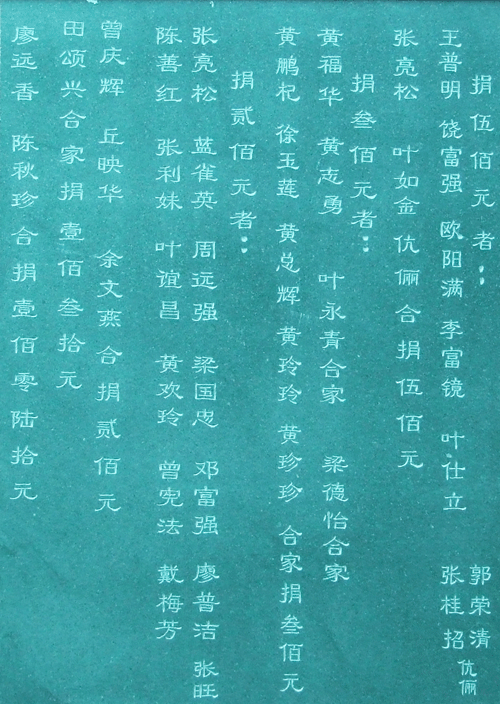 捐伍佰元者：
王普明 饶富强 欧阳满 李富镜 叶仕立 郭荣清 张桂招 伉俪
张亮松 叶如金伉俪合捐伍佰元
捐叁佰元者：
黄福华 黄志勇 叶永青合家 梁德怡合家
黄鹏杞 徐玉莲 黄总辉 黄玲玲 黄珍珍 合家捐叁佰元
捐贰佰元者：
张亮松 蓝雀英 周远强 梁国忠 邓富强 廖普洁 张旺
陈善红 张利妹 叶谊昌 黄欢玲 曾宪法 戴梅芳
曾庆辉 丘映华 余文燕合捐贰佰元
田颂兴合家捐壹佰叁拾元
廖远香 陈秋珍合捐壹佰零陆拾元